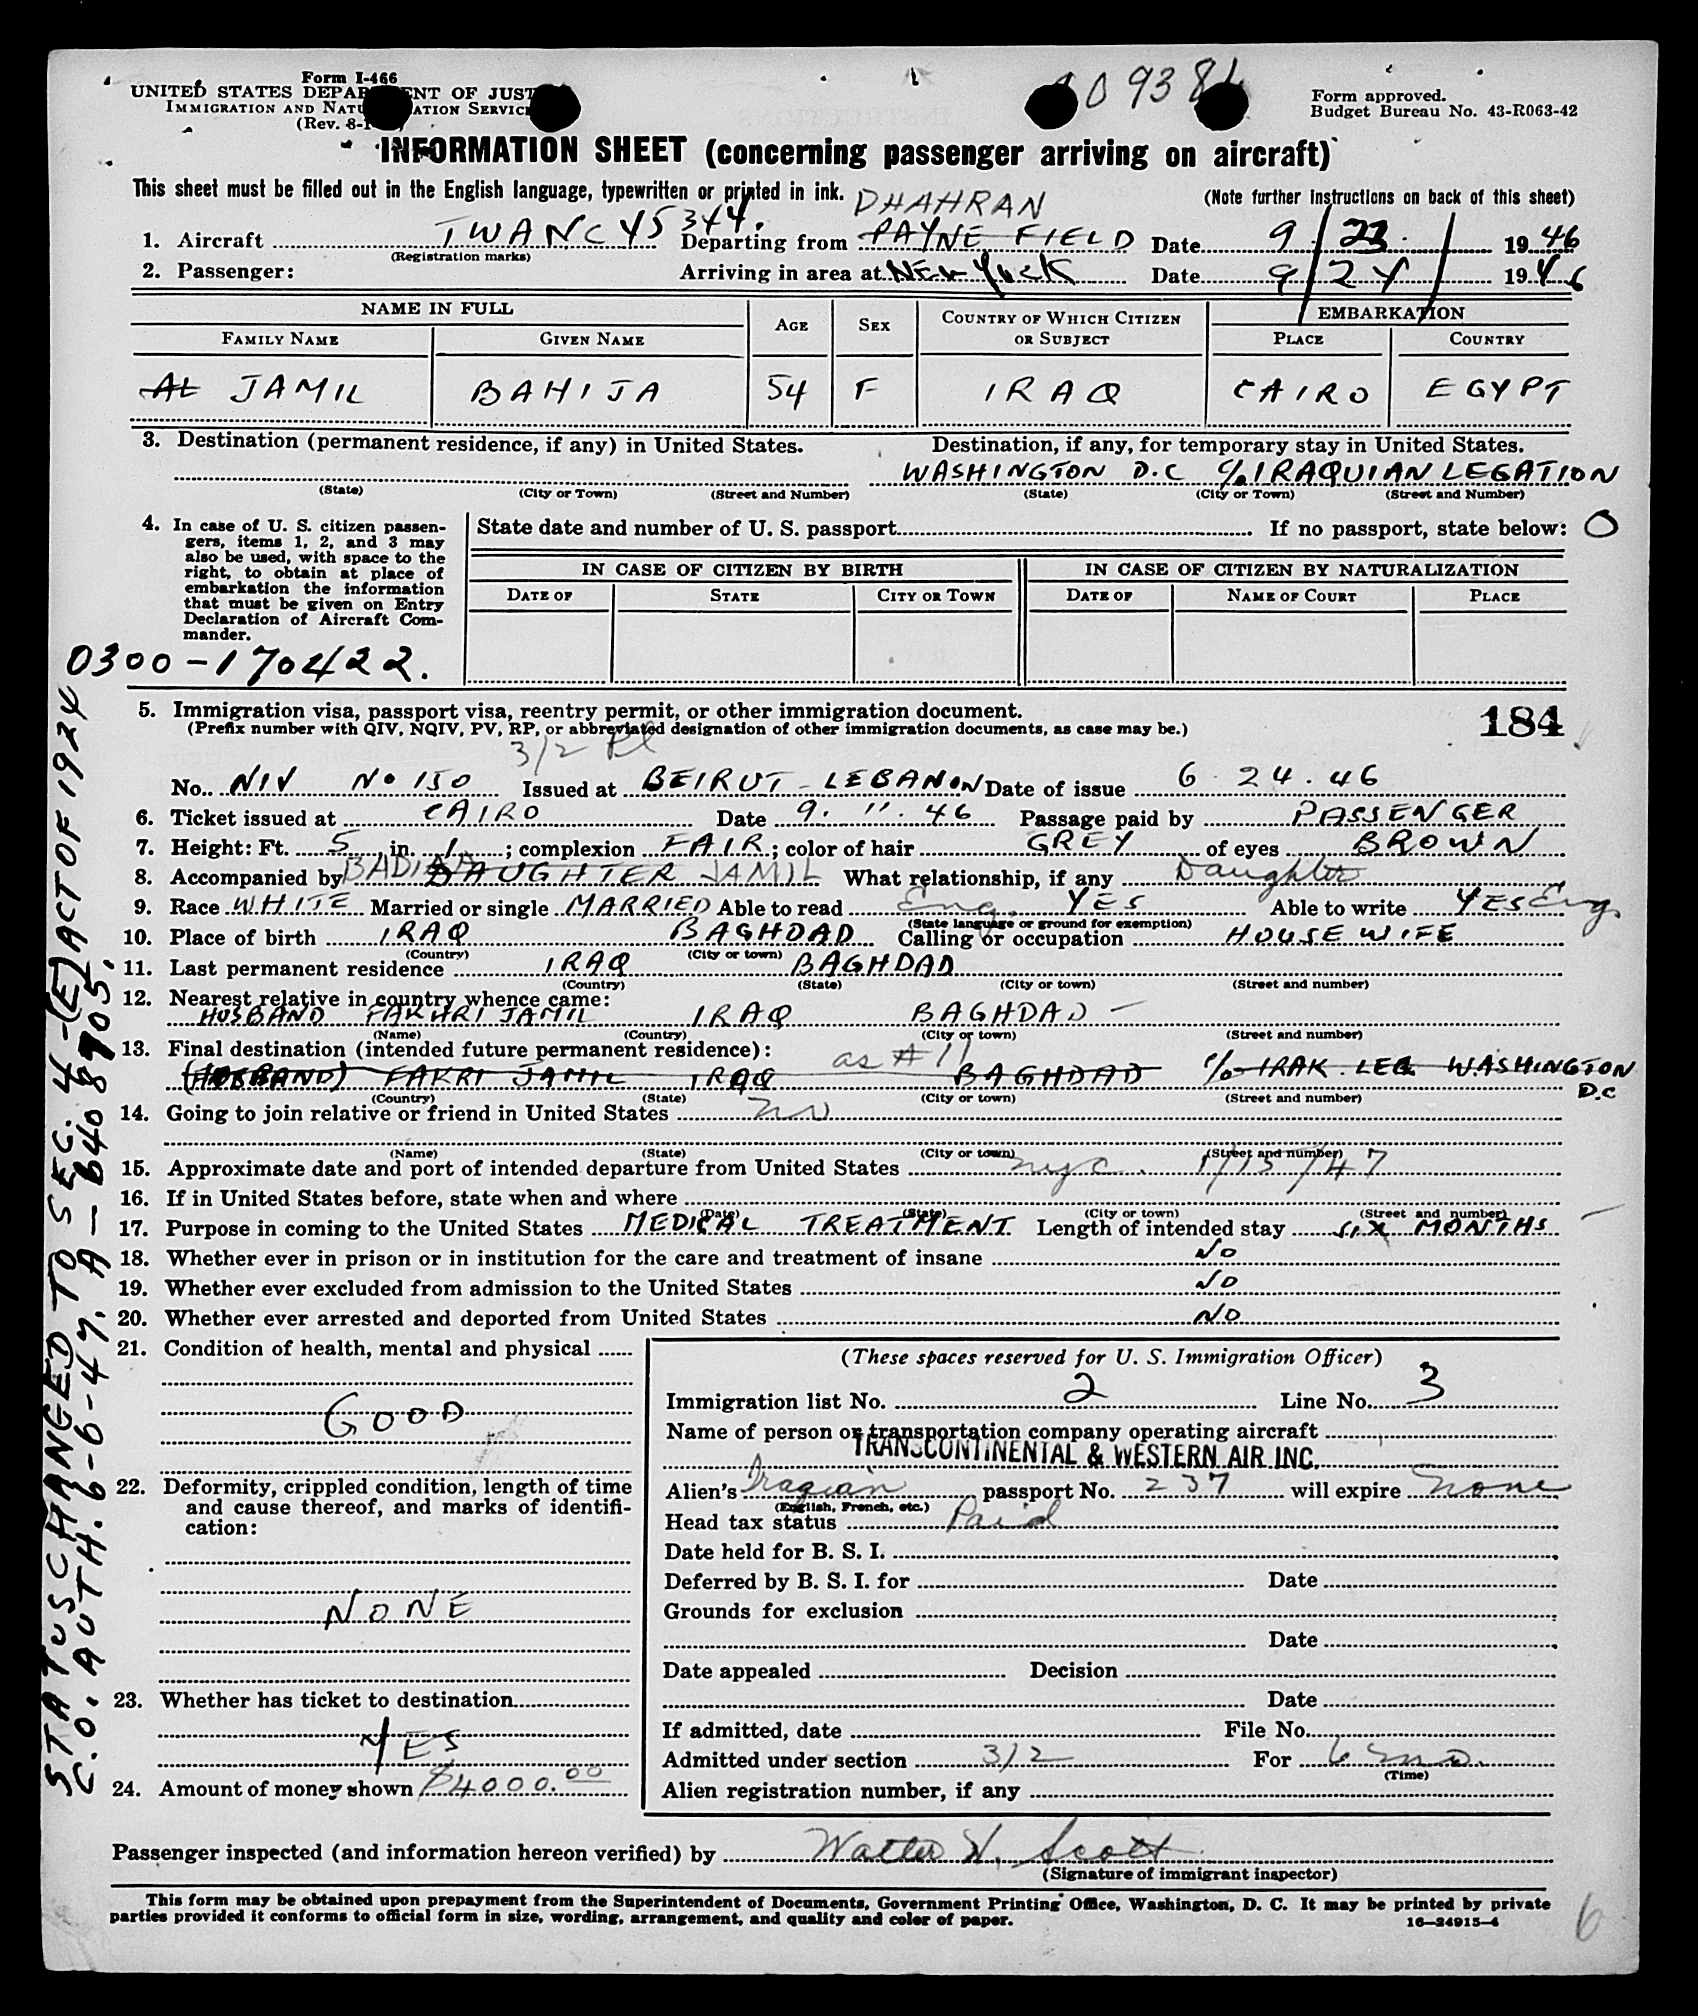 Form I-466
UNITED STATES DEPARTMENT OF JUSTICE
IMMIGRATION AND NATURALIZATION SERVICE
(Rev. 8-
Form approved.
Budget Bureau No. 43-R063-42
INFORMATION SHEET (concerning passenger arriving on aircraft)
This sheet must be filled out in the English language, typewritten or printed in ink.
(Note further instructions on back of this sheet)
DHAHRAN
1. Aircraft TWA NC 45344. Departing from PAYNE FIELD Date 9/23 1946
(Registration marks)
2. Passenger: Arriving in area at NEW YORK Date 9/24/ 1946
NAME IN FULL AGE SEX COUNTRY OF WHICH CITIZEN OR SUBJECT EMBARKATION
FAMILY NAME GIVEN NAME PLACE COUNTRY
AL JAMIL BAHIJA 54 F IRAQ CAIRO EGYPT
3. Destination (permanent residence, if any) in United States. Destination, if any, for temporary stay in United States.
WASHINGTON D.C c/o IRAQUIAN LEGATION
(State) (City or Town) (Street and Number) (State) (City or Town) (Street and Number)
4. In case of U. S. citizen passen-
gers, items 1, 2, and 3 may
also be used, with space to the
right, to obtain at place of
embarkation the information
that must be given on Entry
Declaration of Aircraft Com-
mander.
State date and number of U. S. passport If no passport, state below: O
IN CASE OF CITIZEN BY BIRTH IN CASE OF CITIZEN BY NATURALIZATION
DATE OF STATE CITY OR TOWN DATE OF NAME OF COURT PLACE
0300-170422.
5. Immigration visa, passport visa, reentry permit, or other immigration document.
(Prefix number with QIV, NQIV, PV, RP, or abbreviated designation of other immigration documents, as case may be.)
184
3/2
No. NIV No 150 Issued at BEIRUT - LEBANON Date of issue 6 24.46
6. Ticket issued at CAIRO Date 9. 11. 46 Passage paid by PASSENGER
7. Height: Ft. 5 in. 1 in. ; complexion FAIR ; color of hair GREY of eyes BROWN
8. Accompanied by BADIA DAUGHTER JAMIL What relationship, if any Daughter
9. Race WHITE Married or single MARRIED Able to read Eng. YES Able to write YES Eng.
(State language or ground for exemption)
10. Place of birth IRAQ BAGHDAD Calling or occupation HOUSE WIFE
(Country) (City or town)
11. Last permanent residence IRAQ BAGHDAD
(Country) (State) (City or town) (Street and number)
12. Nearest relative in country whence came:
HUSBAND FAKHRI JAMIL IRAQ BAGHDAD -
(Name) (Country) (City or town) (Street and number)
13. Final destination (intended future permanent residence): as # 11
(HUSBAND) FAKRI JAMIL IRAQ BAGHDAD c/o IRAK. LEG. WASHINGTON D.C
(Country) (State) (City or town) (Street and number)
14. Going to join relative or friend in United States no
(Name) (State) (City or town) (Street and number)
15. Approximate date and port of intended departure from United States nyc. 1/15/47
16. If in United States before, state when and where
(Date) (State) (City or town) (Street and number)
17. Purpose in coming to the United States MEDICAL TREATMENT Length of intended stay SIX MONTHS
18. Whether ever in prison or in institution for the care and treatment of insane NO
19. Whether ever excluded from admission to the United States NO
20. Whether ever arrested and deported from United States NO
21. Condition of health, mental and physical
GOOD
22. Deformity, crippled condition, length of time
and cause thereof, and marks of identifi-
cation:
NONE
23. Whether has ticket to destination
YES
24. Amount of money shown $4000.00
(These spaces reserved for U. S. Immigration Officer)
Immigration list No. 2 Line No. 3
Name of person or transportation company operating aircraft
TRANSCONTINENTAL & WESTERN AIR INC.
Alien's Iraqian passport No. 237 will expire None
(English, French, etc.)
Head tax status Paid
Date held for B. S. I.
Deferred by B. S. I. for Date
Grounds for exclusion
Date
Date appealed Decision
Date
If admitted, date File No.
Admitted under section 3/2 For 6 mo.
(Time)
Alien registration number, if any
Passenger inspected (and information hereon verified) by Walter H. Scott
(Signature of immigrant inspector)
This form may be obtained upon prepayment from the Superintendent of Documents, Government Printing Office, Washington, D. C. It may be printed by private
parties provided it conforms to official form in size, wording, arrangement, and quality and color of paper.
16-24915-4
6
STATUS CHANGED TO SEC. 4-(E) ACT OF 1924
C.O. AUTH. 6-6-47. A-6408905.